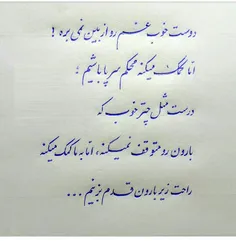 دوست خوب غم رو از بین نمی بره !
اما کمک میکنه محکم سر پا باشیم ؛
درست مثل چتر خوب که
بارون رو متوقف نمیکنه، اما به ما کمک میکنه
راحت زیر بارون قدم بزنیم ...